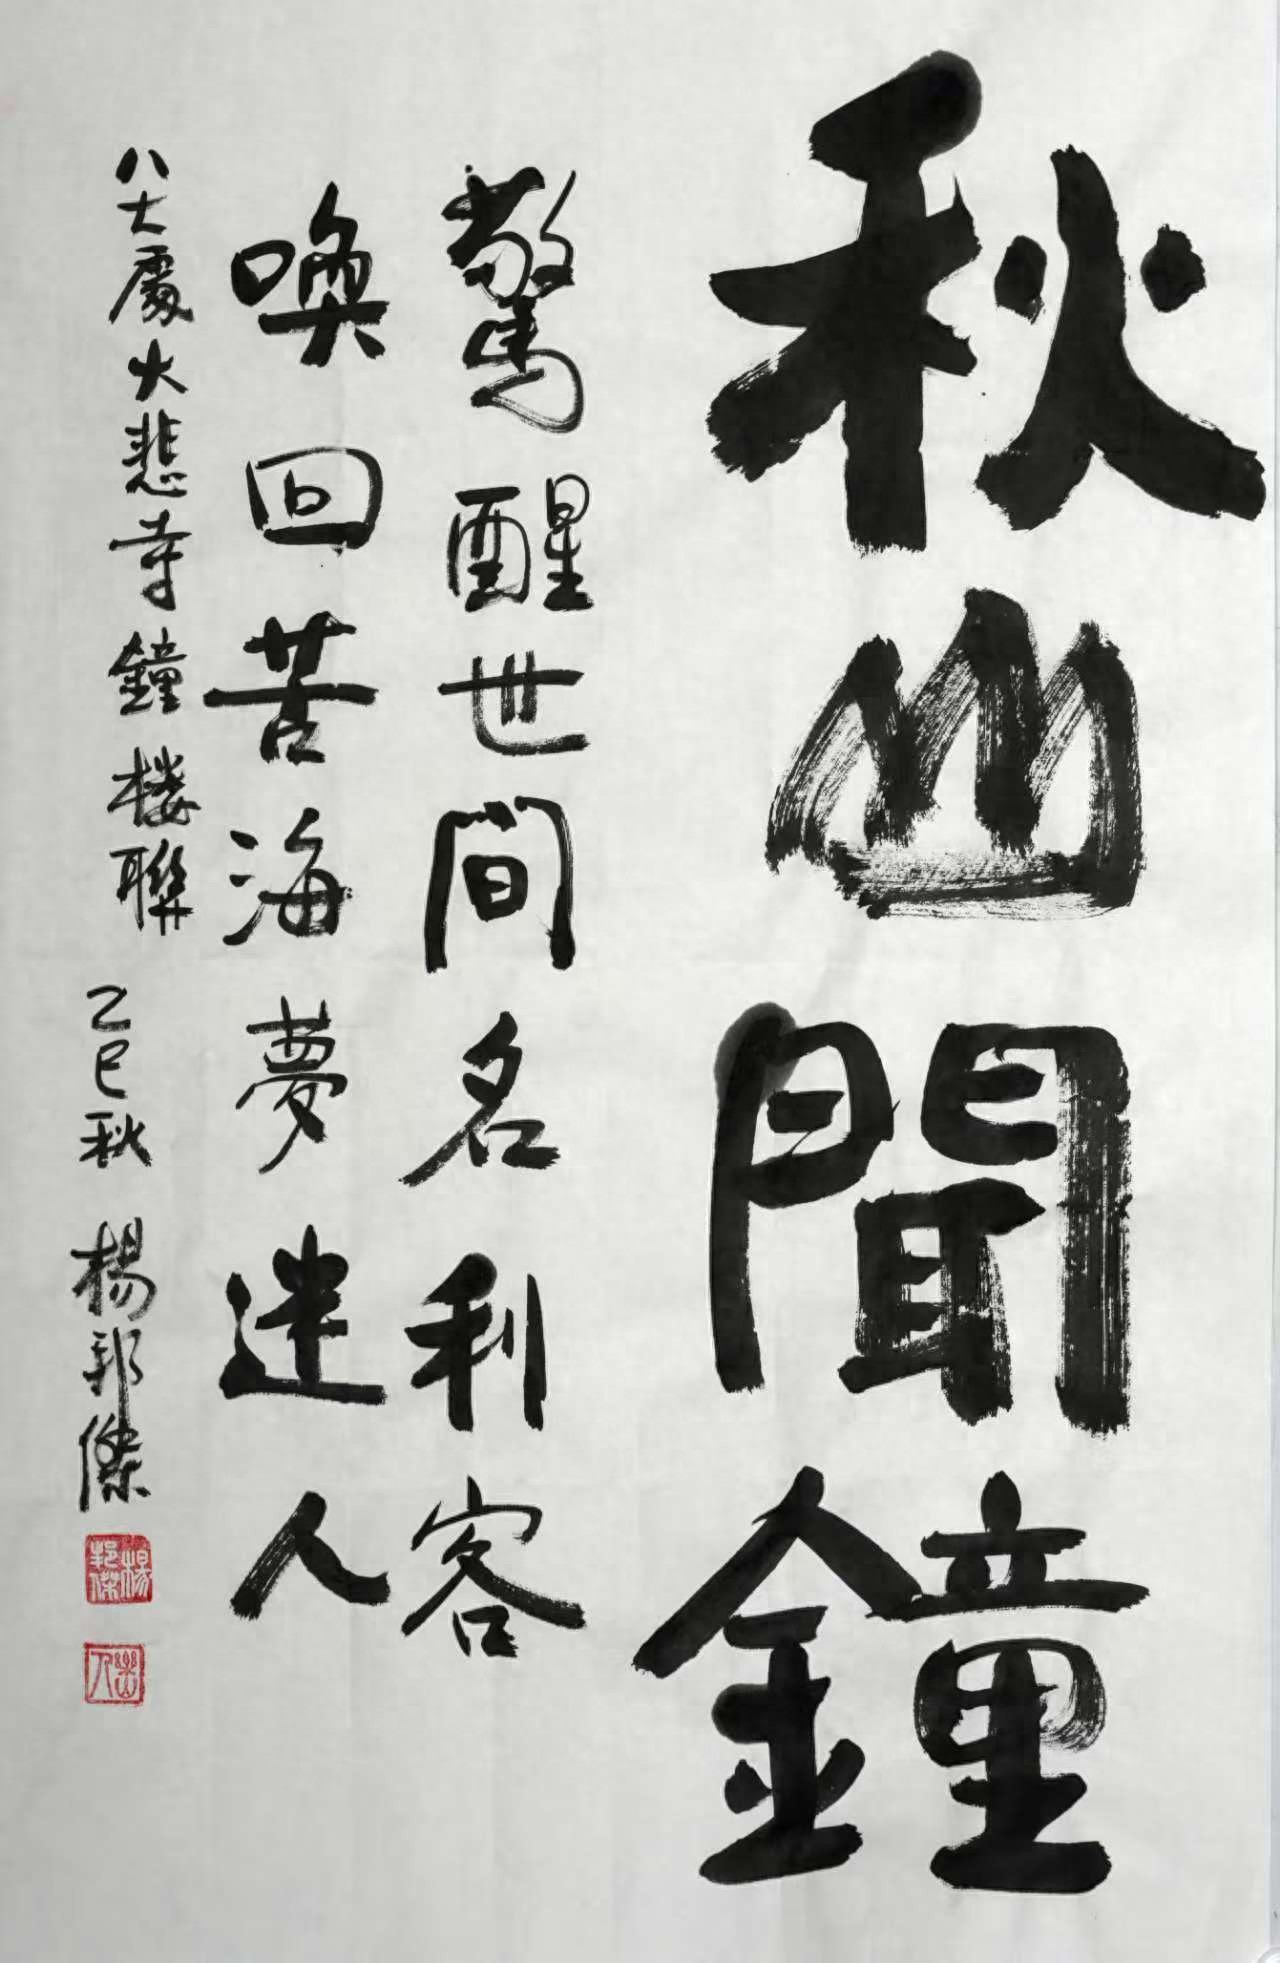 秋山聞鐘
驚醒世間名利客
喚回苦海夢迷人
八大處大悲寺鐘樓聯
乙巳秋 楊邦傑
楊邦傑
幽人